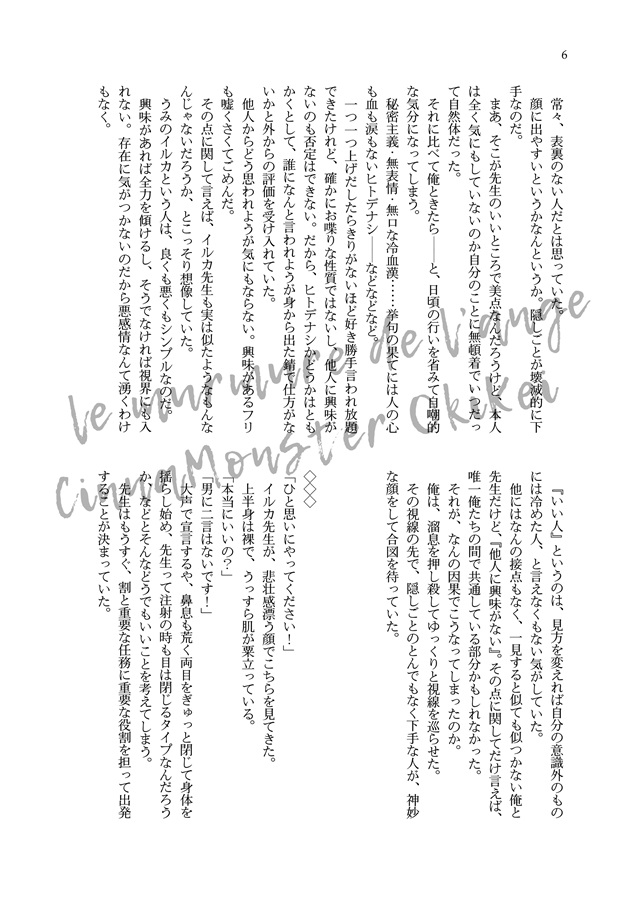 6
常々、表裏のない人だとは思っていた。
顔に出やすいというかなんというか。隠しごとが壊滅的に下
手なのだ。
まあ、そこが先生のいいところで美点なんだろうけど、本人
は全く気にもしていないのか自分のことに無頓着でいつだっ
て自然体だった。
それに比べて俺ときたら――と、日頃の行いを省みて自嘲的
な気分になってしまう。
秘密主義・無表情・無口な冷血漢……挙句の果てには人の心
も血も涙もないヒトデナシ――などなどなど。
一つ一つ上げだしたらきりがないほど好き勝手言われ放題
できたけれど、確かにお喋りな性質ではないし、他人に興味が
ないのも否定はできない。だから、ヒトデナシかどうかはとも
かくとして、誰になんと言われようが身から出た錆で仕方がな
いかと外からの評価を受け入れていた。
他人からどう思われようが気にもならない。興味があるフリ
も嘘くさくてごめんだ。
その点に関して言えば、イルカ先生も実は似たようなもんな
んじゃないだろうか、とこっそり想像していた。
うみのイルカという人は、良くも悪くもシンプルなのだ。
興味があれば全力を傾けるし、そうでなければ視界にも入
れない。存在に気がつかないのだから悪感情なんて湧くわけ
もなく。
『いい人』というのは、見方を変えれば自分の意識外のもの
には冷めた人、と言えなくもない気がしていた。
他にはなんの接点もなく、一見すると似ても似つかない俺と
先生だけど、『他人に興味がない』。その点に関してだけ言えば、
唯一俺たちの間で共通している部分かもしれなかった。
それが、なんの因果でこうなってしまったのか。
俺は、溜息を押し殺してゆっくりと視線を巡らせた。
その視線の先で、隠しごとのとんでもなく下手な人が、神妙
な顔をして合図を待っていた。
◇◇◇
「ひと思いにやってください！」
イルカ先生が、悲壮感漂う顔でこちらを見てきた。
上半身は裸で、うっすら肌が粟立っている。
「本当にいいの？」
「男に二言はないです！」
大声で宣言するや、鼻息も荒く両目をぎゅっと閉じて身体を
揺らし始め、先生って注射の時も目は閉じるタイプなんだろう
か、などとそんなどうでもいいことを考えてしまう。
先生はもうすぐ、割と重要な任務に重要な役割を担って出発
することが決まっていた。
Le murmure de l'ange
CinnaMonster Okikei